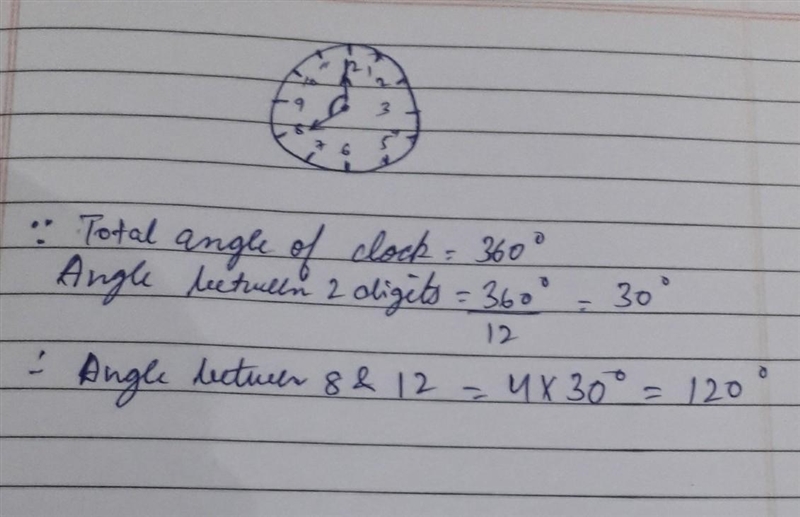 12 1
11 2
10
9 3
8
7 6 5
∵ Total angle of clock = 360°
Angle between 2 digits = 360°/12 = 30°
∴ Angle between 8 & 12 = 4 X 30° = 120°